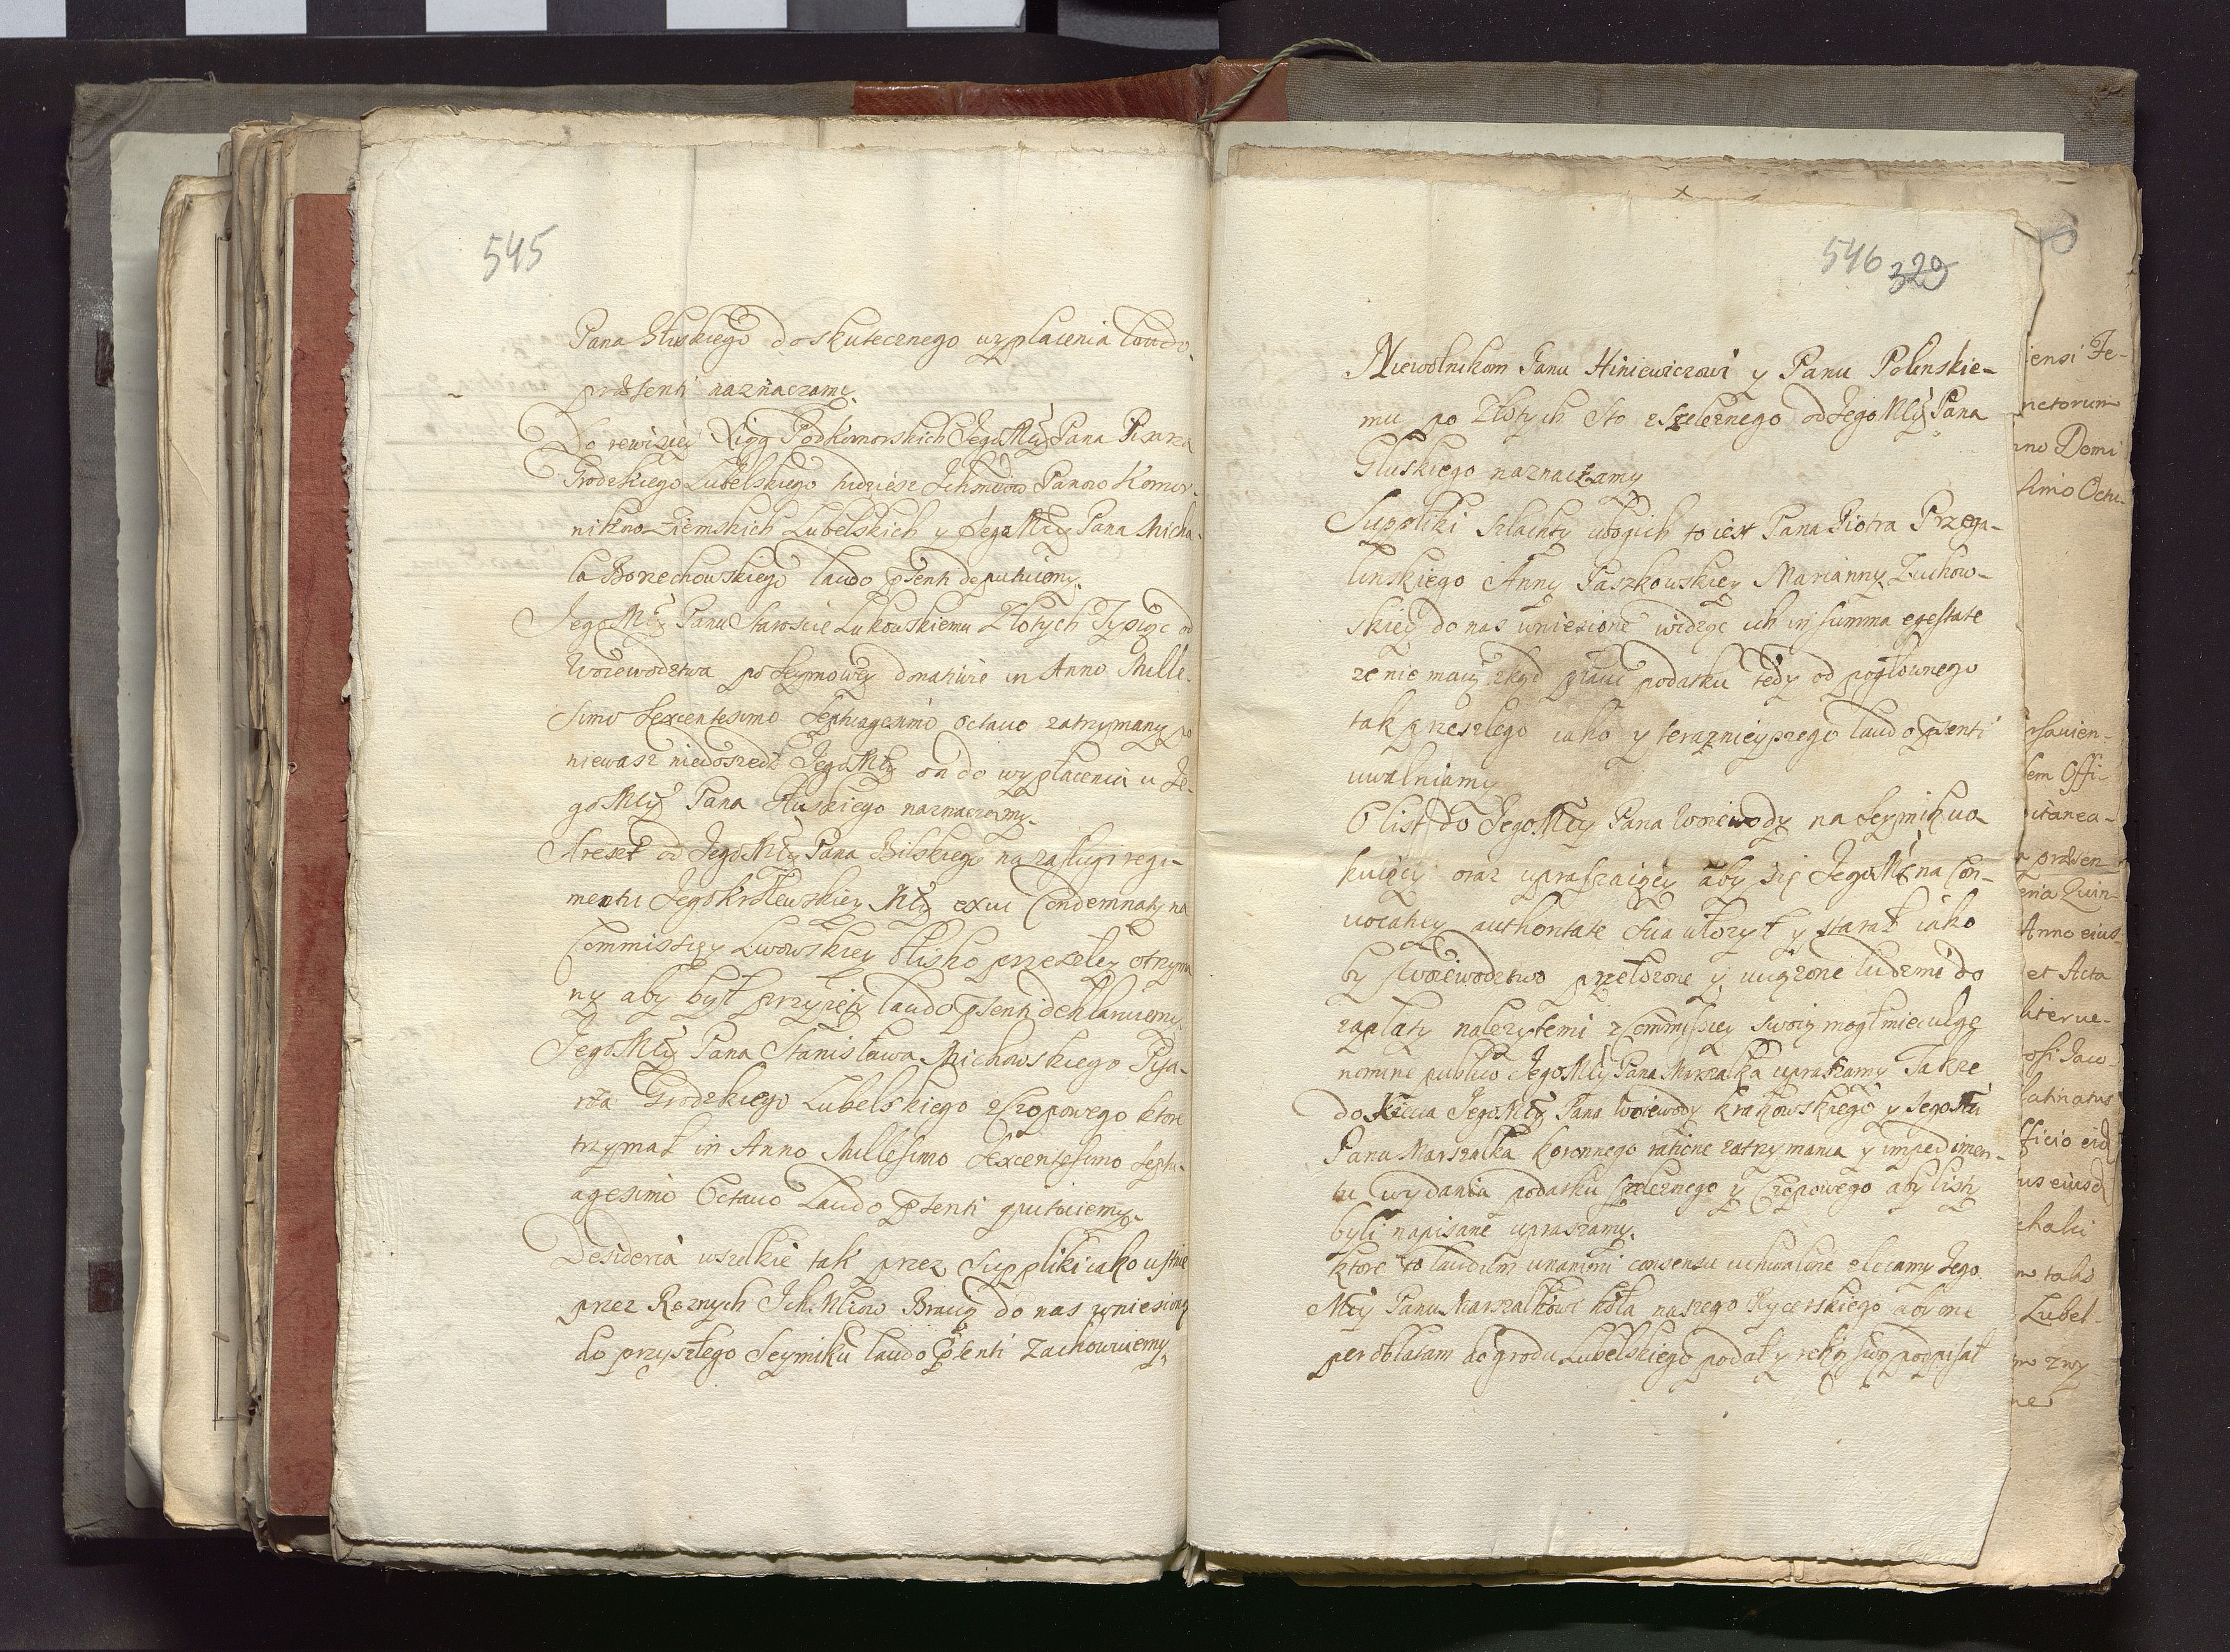 545
Pana Głuskiego do skutecznego wypłacenia laudo
præsenti naznaczamy.
Do rewiziey Xiąg Podkomorskich JegoMści Pana Pisarza
Grodzkiego Lubelskiego tudziesz Ichmciow Panow Komor-
nikow Ziemskich Lubelskich y JegoMści Pana Micha-
ła Borzechowskiego laudo pſenti deputuiemy.
JegoMści Panu Staroscie Łukowskiemu Złotych Tysiąc od
Woiewodztwa po Seymowey donatiwie in Anno Mille-
simo Sexcentesimo Septuagesimo octauo zatrzymany po
niewasz niedoszedł JegoMści on do wypłacenia u Je-
goMści Pana Głuskiego naznaczamy.
Areszt od JegoMści Pana Bilskiego na zasługi regi-
mentu JegoKrolewskiey Mści exui Condemnaty na
Commissiey Lwowskiey blisko przeszłey otrzyma
ny aby był przyięty laudo pſenti deklaruiemy
JegoMści Pana Stanisława Michowskiego Pisa-
rza Grodzkiego Lubelskiego z Czopowego ktore
trzymał in Anno Millesimo Sexcentesimo Septu-
agesimo Octauo Laudo pſenti quituiemy.
Desideria wszelkie tak przez Suppliki iako ustnie
przez Roznych Ich Mciow Braci do nas wniesione
do przyszłego Seymiku laudo pſenti zachowuiemy.
546 329
Niewolnikom Panu Hiniewiczowi y Panu Polinskie-
mu po Złotych Sto z Szelęznego od JegoMści Pana
Głuskiego naznaczamy
Suppliki Szlachty ubogich to iest Pana Piotra Przega-
linskiego Anny Paszkowskiey Marianny Zuchow-
skiey do nas wniesione widząc ich in summa egestate
ze nie maią zkąd płacić podatku tedy od pogłownego
tak przeszłego iako y teraznieyszego laudo pſenti
uwalniamy
O list do JegoMści Pana Woiewody na Seymik wo-
kuiący oraz upraszaiący aby się JegoMć na Con-
uocatiey authoritate sua włozył y starał iako
by Woiewodztwo przełozone y uciązone ludzmi do
zapłaty nalezytemi z Commissiey swoiey mogł miec ulgę
nomine publico JegoMści Pana Marszałka upraszamy Takze
do Xiecia JegoMści Pana Woiewody Krakowskiego y JegoMści
Pana Marszałka Koronnego ratione zatrzymania y impedimen-
tu wydania podatku szelęznego y Czopowego aby listy
byli napisane upraszamy.
Ktore to laudum unanimi consensu uchwalone zlecamy Jego
Mści Panu Marszałkowi koła naszego Rycerskiego aby one
per oblatam do grodu Lubelskiego podał y ręką swą podpisał
iensi Fe-
netorum
nno Domi
simo Octu-
rsouien-
dem Offi-
itanea-
præsen
ena Quin-
Anno eius-
et Acta
liter ue-
osi Jaco
latinatus
fficio eid
us eiusd
chalci
takż
Lubel-
zwy-